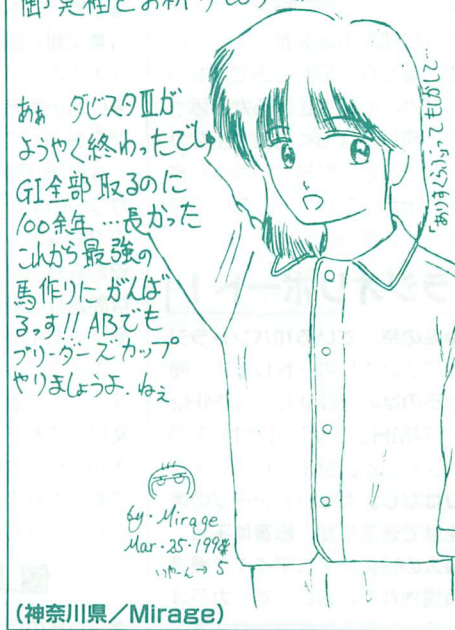 御冥福をお祈り
ああ ダビスタⅢが
ようやく終わったでし。
GI全部取るのに
100余年…長かった
これから最強の
馬作りにがんば
るっす!! ABでも
ブリーダーズカップ
やりましょうよ.ねぇ
by・Mirage
Mar・25・199
いやーん→5
(神奈川県/Mirage)